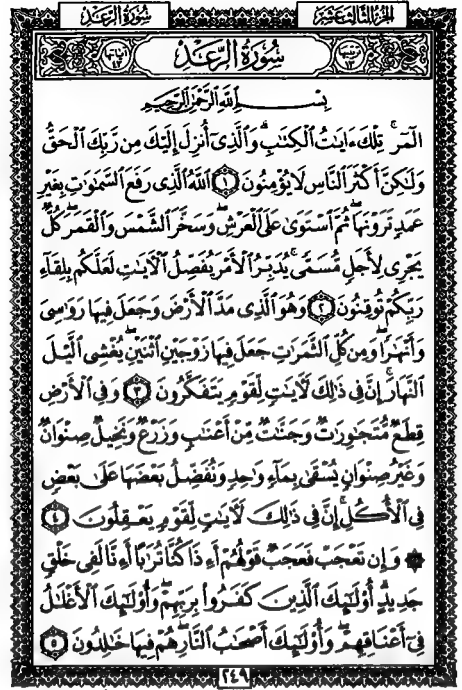 الجزء الثالث عشر
سُورَةُ الرَّعْدِ
سُورَةُ الرَّعْدِ
بِسْمِ اللَّهِ الرَّحْمَٰنِ الرَّحِيمِ
الٓمٓرۚ تِلْكَ ءَايَٰتُ ٱلْكِتَٰبِۗ وَٱلَّذِىٓ أُنزِلَ إِلَيْكَ مِن رَّبِّكَ ٱلْحَقُّ
وَلَٰكِنَّ أَكْثَرَ ٱلنَّاسِ لَا يُؤْمِنُونَ ١ ٱللَّهُ ٱلَّذِى رَفَعَ ٱلسَّمَٰوَٰتِ بِغَيْرِ
عَمَدٍ تَرَوْنَهَاۖ ثُمَّ ٱسْتَوَىٰ عَلَى ٱلْعَرْشِۖ وَسَخَّرَ ٱلشَّمْسَ وَٱلْقَمَرَۖ كُلٌّ
يَجْرِى لِأَجَلٍ مُّسَمًّىۚ يُدَبِّرُ ٱلْأَمْرَ يُفَصِّلُ ٱلْءَايَٰتِ لَعَلَّكُم بِلِقَآءِ
رَبِّكُمْ تُوقِنُونَ ٢ وَهُوَ ٱلَّذِى مَدَّ ٱلْأَرْضَ وَجَعَلَ فِيهَا رَوَٰسِىَ
وَأَنْهَٰرًاۖ وَمِن كُلِّ ٱلثَّمَرَٰتِ جَعَلَ فِيهَا زَوْجَيْنِ ٱثْنَيْنِۖ يُغْشِى ٱلَّيْلَ
ٱلنَّهَارَۚ إِنَّ فِى ذَٰلِكَ لَءَايَٰتٍ لِّقَوْمٍ يَتَفَكَّرُونَ ٣ وَفِى ٱلْأَرْضِ
قِطَعٌ مُّتَجَٰوِرَٰتٌ وَجَنَّٰتٌ مِّنْ أَعْنَٰبٍ وَزَرْعٌ وَنَخِيلٌ صِنْوَانٌ
وَغَيْرُ صِنْوَانٍ يُسْقَىٰ بِمَآءٍ وَٰحِدٍ وَنُفَضِّلُ بَعْضَهَا عَلَىٰ بَعْضٍ
فِى ٱلْأُكُلِۚ إِنَّ فِى ذَٰلِكَ لَءَايَٰتٍ لِّقَوْمٍ يَعْقِلُونَ ٤
۞ وَإِن تَعْجَبْ فَعَجَبٌ قَوْلُهُمْ أَءِذَا كُنَّا تُرَٰبًا أَءِنَّا لَفِى خَلْقٍ
جَدِيدٍۗ أُو۟لَٰٓئِكَ ٱلَّذِينَ كَفَرُوا۟ بِرَبِّهِمْۖ وَأُو۟لَٰٓئِكَ ٱلْأَغْلَٰلُ
فِىٓ أَعْنَاقِهِمْۖ وَأُو۟لَٰٓئِكَ أَصْحَٰبُ ٱلنَّارِۖ هُمْ فِيهَا خَٰلِدُونَ ٥
٢٤٩